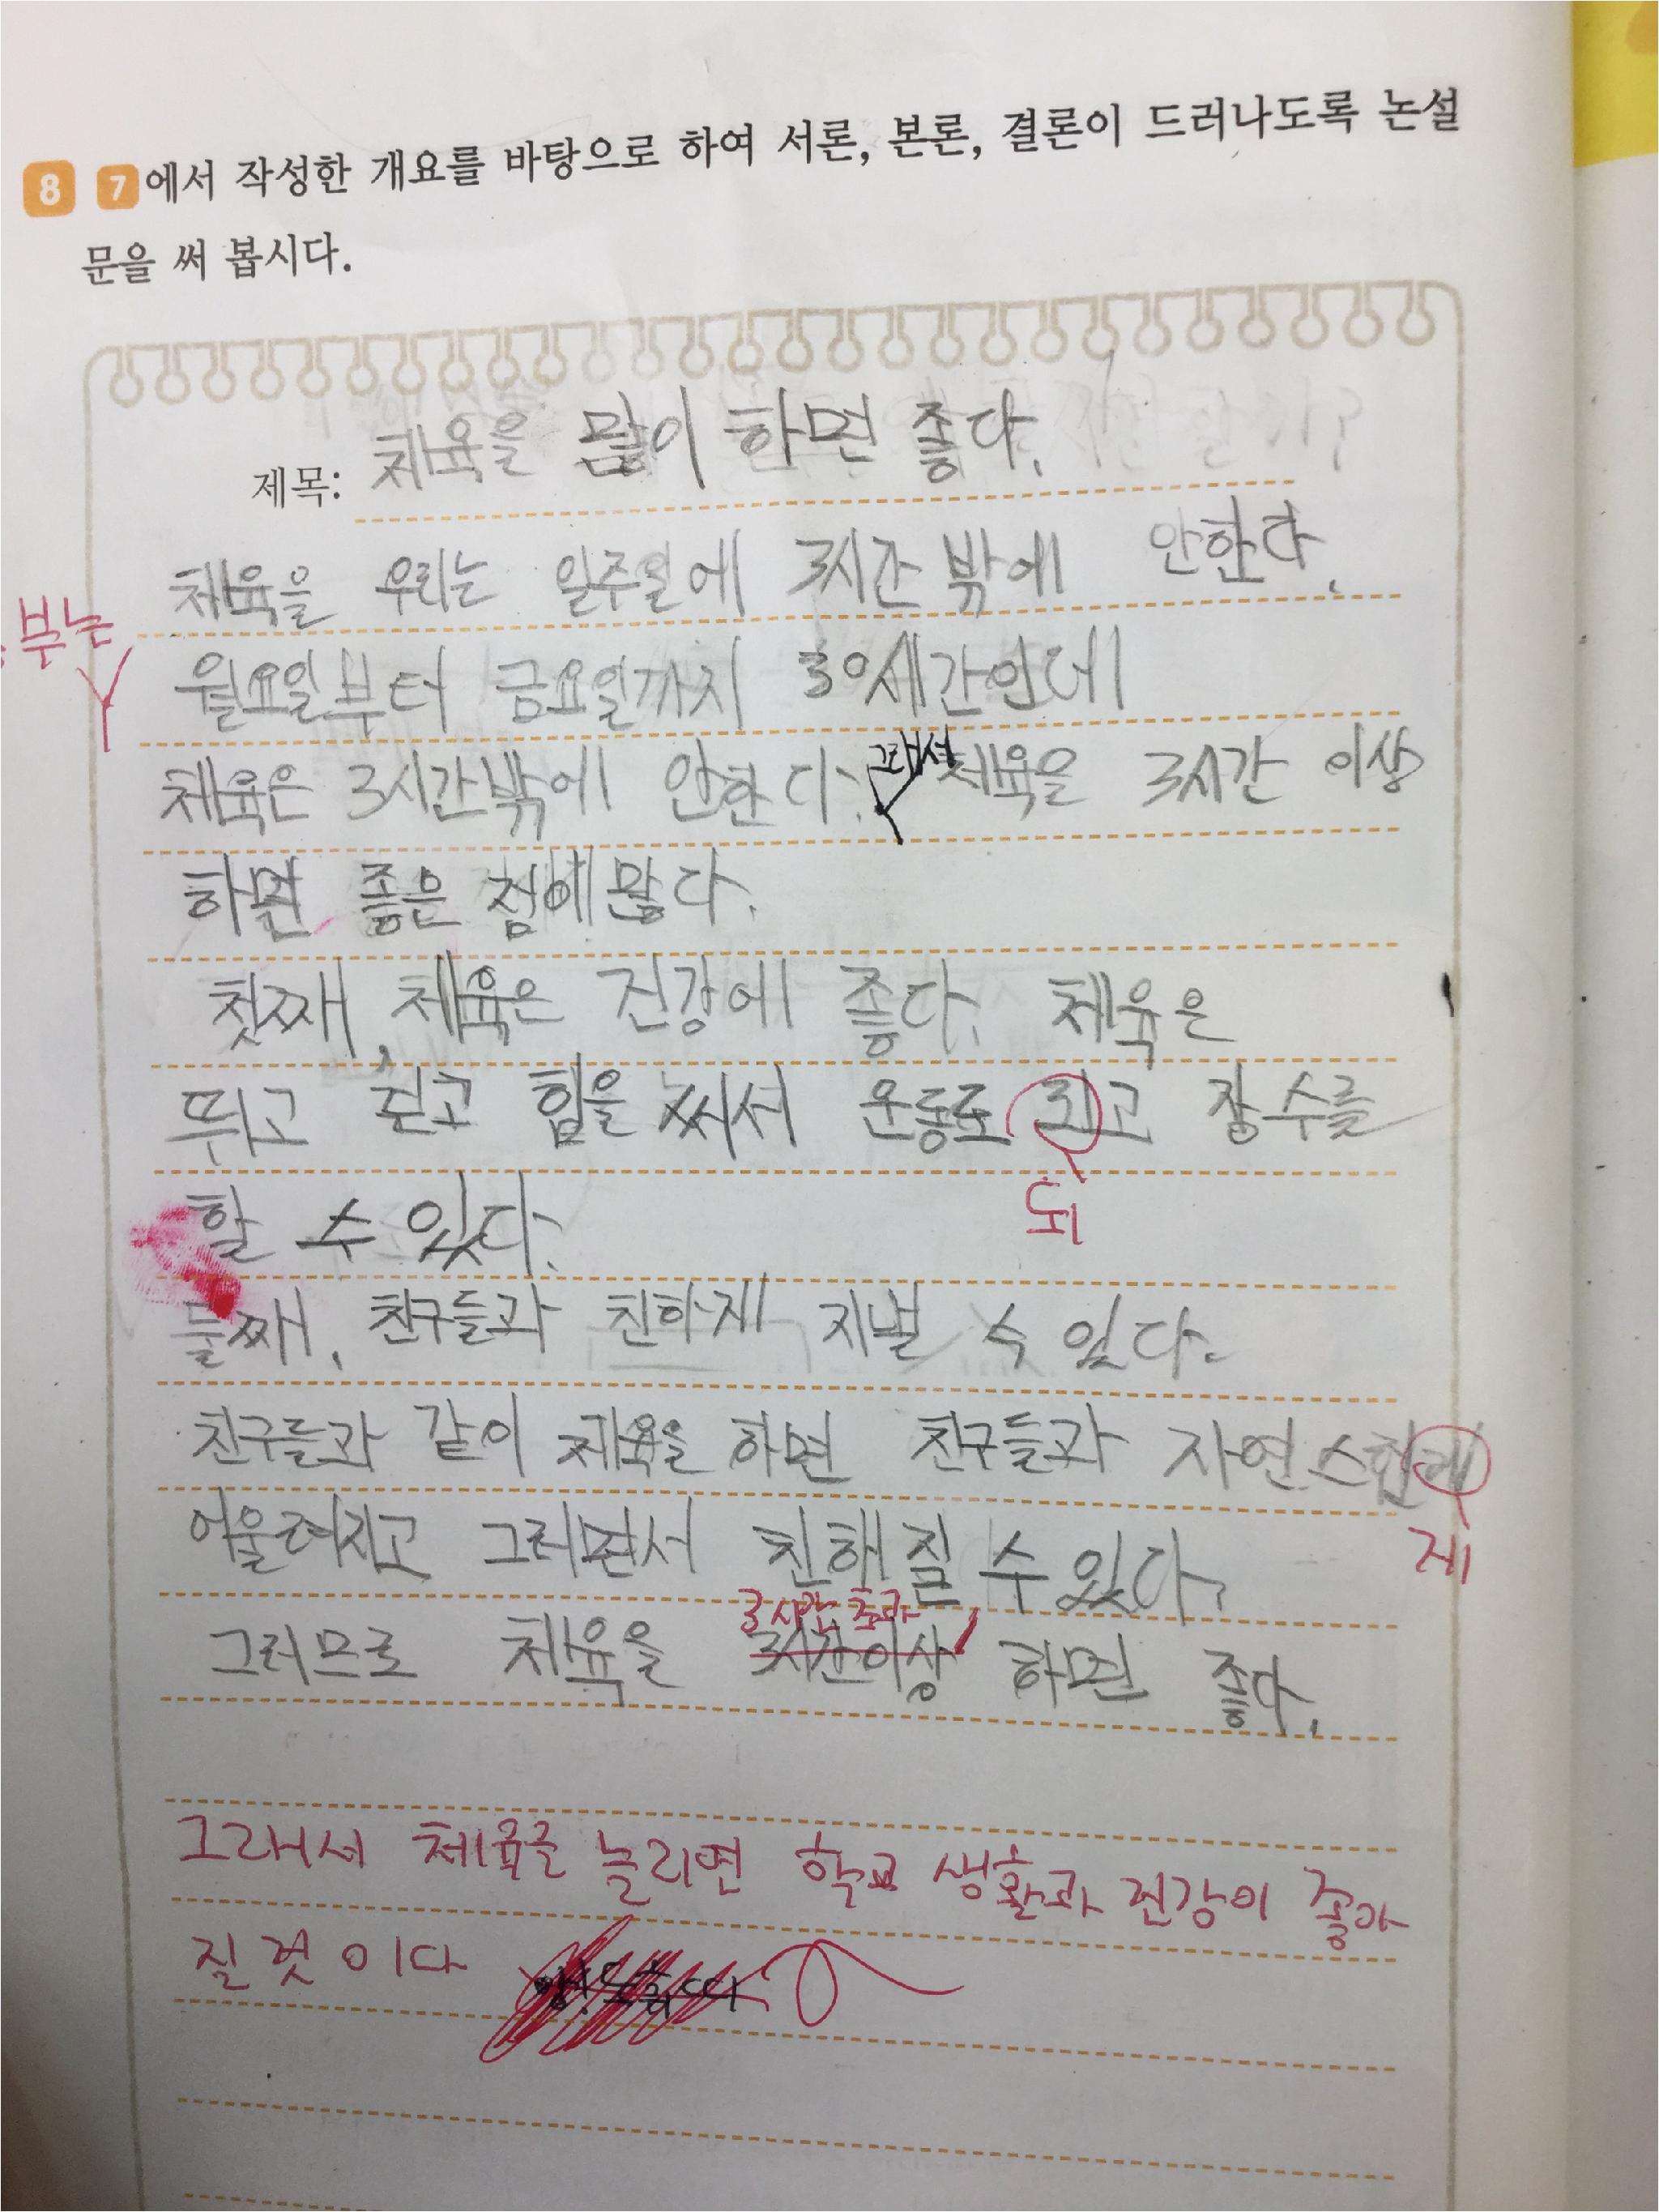 8 7에서 작성한 개요를 바탕으로 하여 서론, 본론, 결론이 드러나도록 논설
문을 써 봅시다.
제목: 체육을 많이 하면 좋다.
체육을 우리는 일주일에 3시간 밖에 안한다.
부는
월요일부터 금요일까지 30시간인데
체육은 3시간밖에 안한다. 그래서 체육을 3시간 이상
하면 좋은 점에 많다.
첫째, 체육은 건강에 좋다. 체육은
뛰고 걷고 힘을 써서 운동도 되고 장수를
되
할 수 있다.
둘째, 친구들과 친하게 지낼 수 있다.
친구들과 같이 체육을 하면 친구들과 자연스럽게
게
어울려지고 그러면서 친해질 수 있다.
3시간 초과
그러므로 체육을 3시간이상 하면 좋다.
그래서 체육을 늘리면 학교 생활과 건강이 좋아
질 것 이다